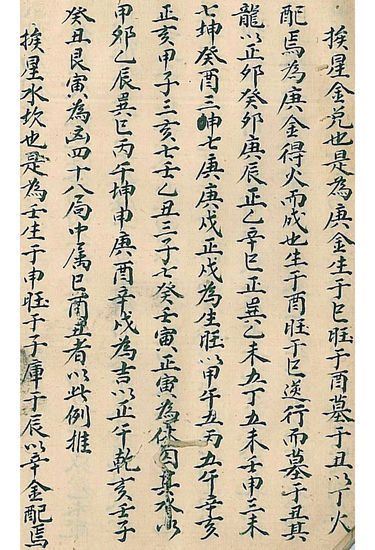 挨星金兑也是為庚金生于巳旺于酉墓于丑以丁火
配焉為庚金得火而成也生于酉旺于巳逆行而墓于丑其
龍以正卯癸卯庚辰正乙辛巳正巽乙未五丁五未壬申三未
七坤癸酉三坤七庚庚戌正戌為生旺以甲午五丙五午辛亥
正亥甲子三亥七壬乙丑三子七癸壬寅正寅為休囚其水以
甲卯乙辰巽巳丙午坤申庚酉辛戌為吉以正午乾亥壬子
癸丑艮寅為凶四十八局中属巳酉丑者以此例推
挨星水坎也是為壬生于申旺于子庫于辰以辛金配焉